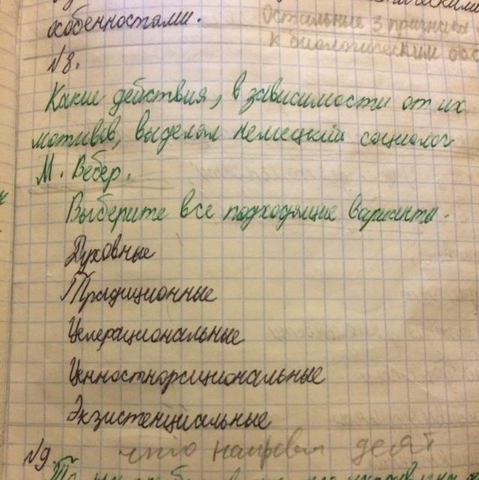 особенностями.
Остальные 3 признаки
к биологическим ос
№8.
Какие действия, в зависимости от их
мотивов, выделял немецкий социолог
М. Вебер.
Выберите все подходящие варианты.
Духовные
Традиционные
Целерациональные
Ценностнорациональные
Экзистенциальные
№9. что направл деят